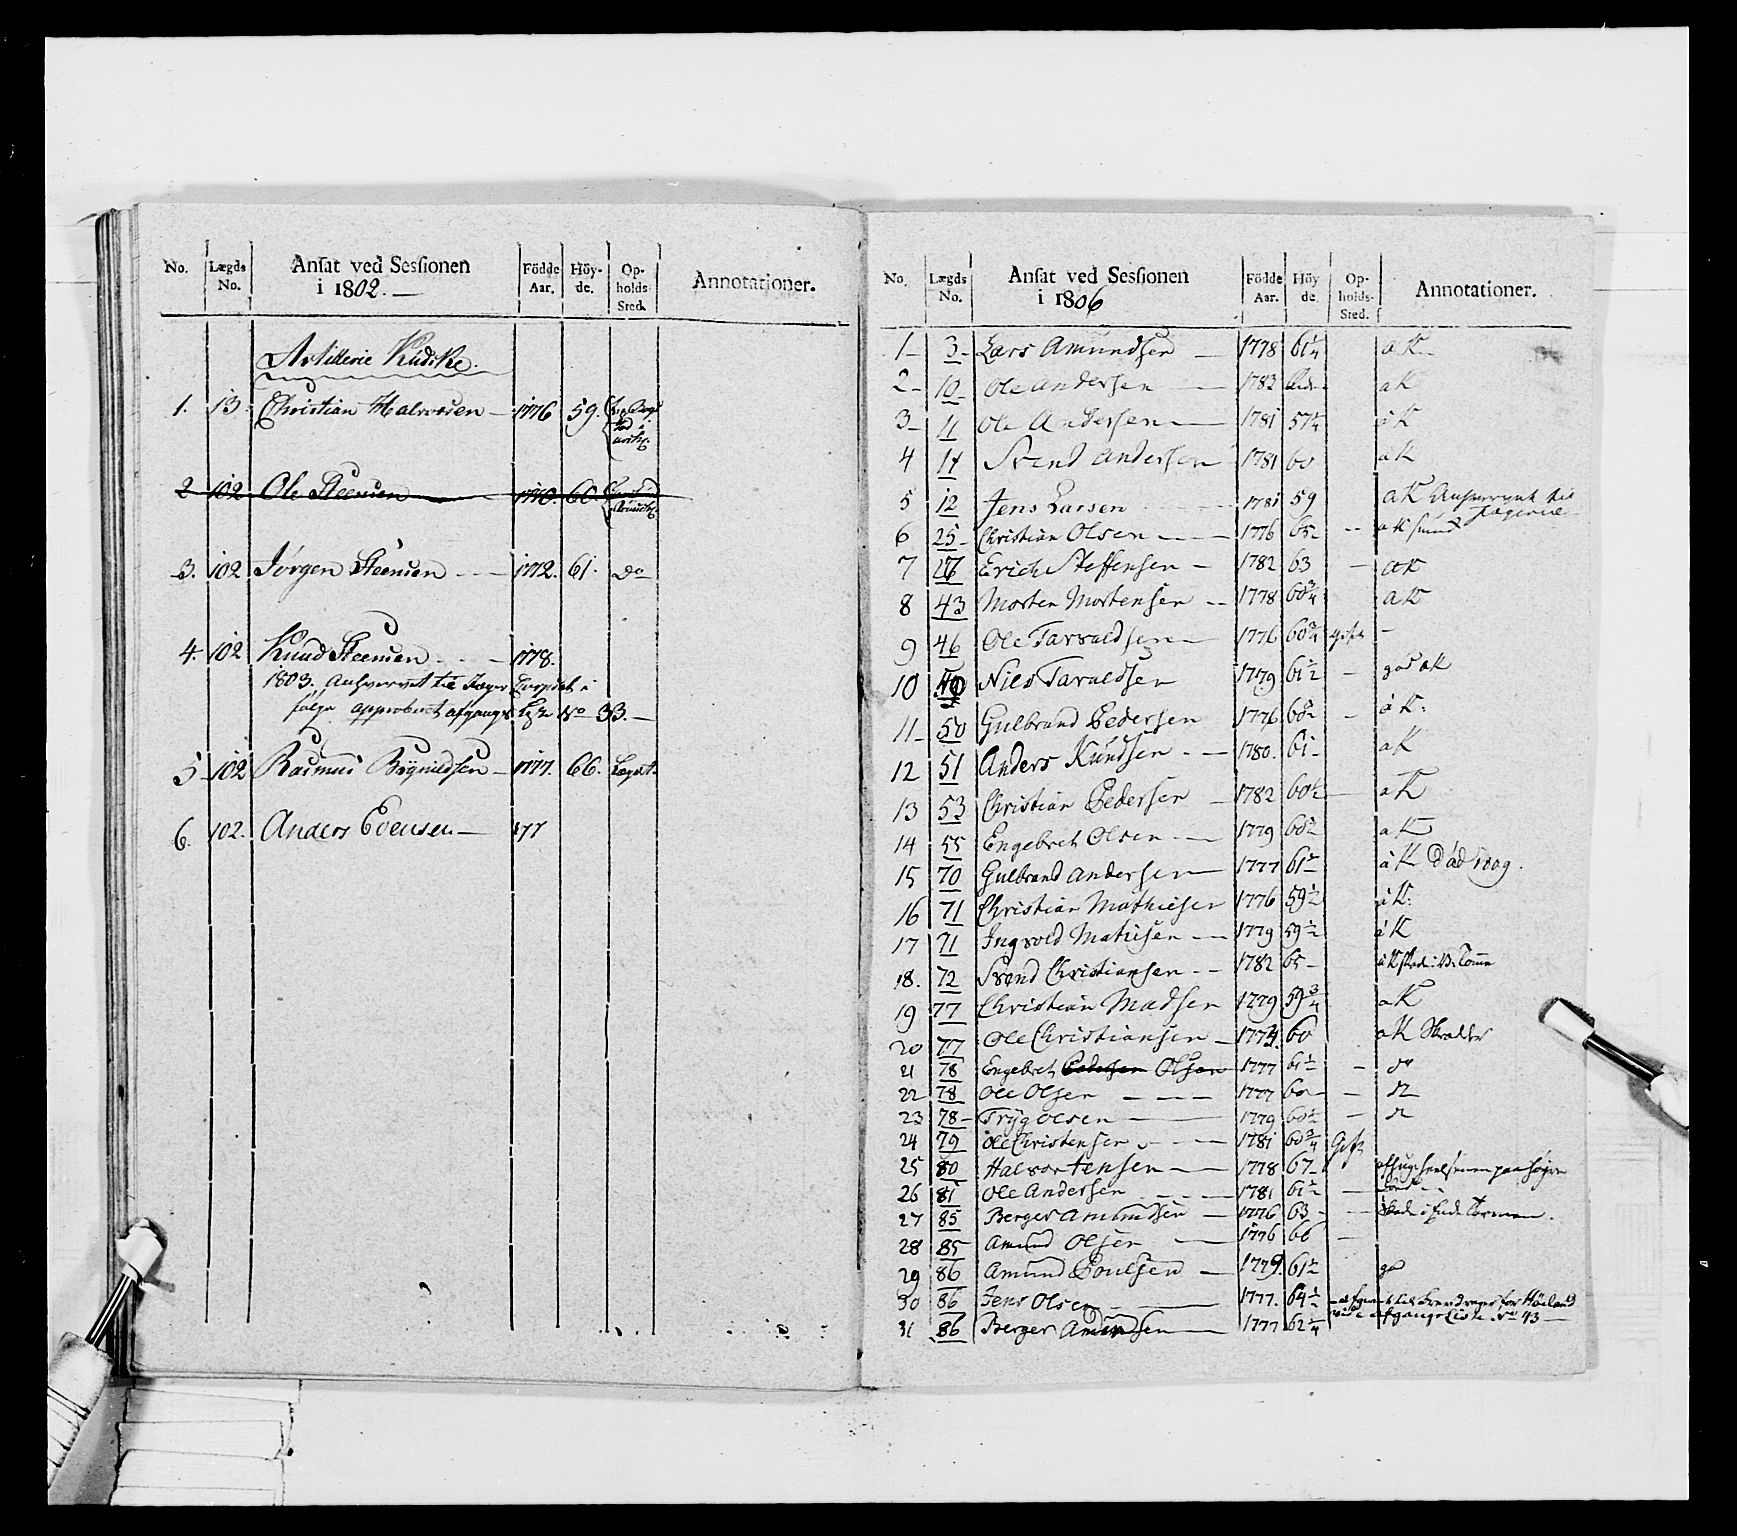 No. Lægds No. Ansat ved Sessionen i 1802. Födde Aar. Höyde. Opholds Sted. Annotationer.
Artillerie Kudske.
1. 13. Christian Halvorsen 1776 59.
2 102 Ole Steensen 1770. 60.
3. 102 Jørgen Steensen 1772. 61. do
4. 102 Knud Steensen 1778.
1803. Anhvervet til Jæger Corpset i
følge approberet afgangs Liste No 33.
5 102 Rasmus 1777. 66.
6. 102. Anders Evensen 177
No. Lægds No. Ansat ved Sessionen i 1806 Födde Aar. Höyde. Opholds Sted. Annotationer.
1 3 Lars Amundsen 1778 61¼ aK
2 10 Ole Andersen 1783 aK
3 11 Ole Andersen 1781 57¼ aK
4 11 Svend Andersen 1781 60 aK
5 12 Jens Larsen 1781 59 aK Anhvervet til
6 25 Christian Olsen 1776 aK
7 Erich Steffensen 1782 63 aK
8 43 Morten Mortensen 1778 60¾ aK
9 46 Ole Tarvaldsen 1776 Gift
10 Niels Tarvaldsen 1779 61½ god aK
11 50 Gulbrand Pedersen 1776 60½ aK.
12 51 Anders Knudsen 1780. 61 aK
13 53 Christian Pedersen 1782 60½ aK
14 55 Engebret Olsen 1779 60½ aK
15 70 Gulbrand Andersen 1777 61½ aK Död 1809.
16 71 Christian Mathiesen 1776 59½ aK.
17 71 Ingvold Matiesen 1779 59½ aK
18. 72 Svend Christiansen 1782 65 aK
19 77 Christian Madsen 1779 59¾ aK
20 77 Ole Christiansen 60 aK Skrædder
21 78 Engebret Pedersen Olsen 1777 61½ do
22 78 Ole Olsen 1777 60 do
23 78 Tryg Olsen 1779 60½ do
24 79 Ole Christensen 1781 60¾ Gift
25 80 Halvor Jensen 1778 67
26 81 Ole Andersen 1781 61½
27 85 Berger Amundsen 1776 63
28 85 Amund Olsen 1776 66
29 86 Amund Poulsen 1779. 61½ god
30 86 Jens Olsen 1777. 64½ for Höeland
vide Afgangs Liste No 43
31 86 Berger Amundsen 1777 62¼